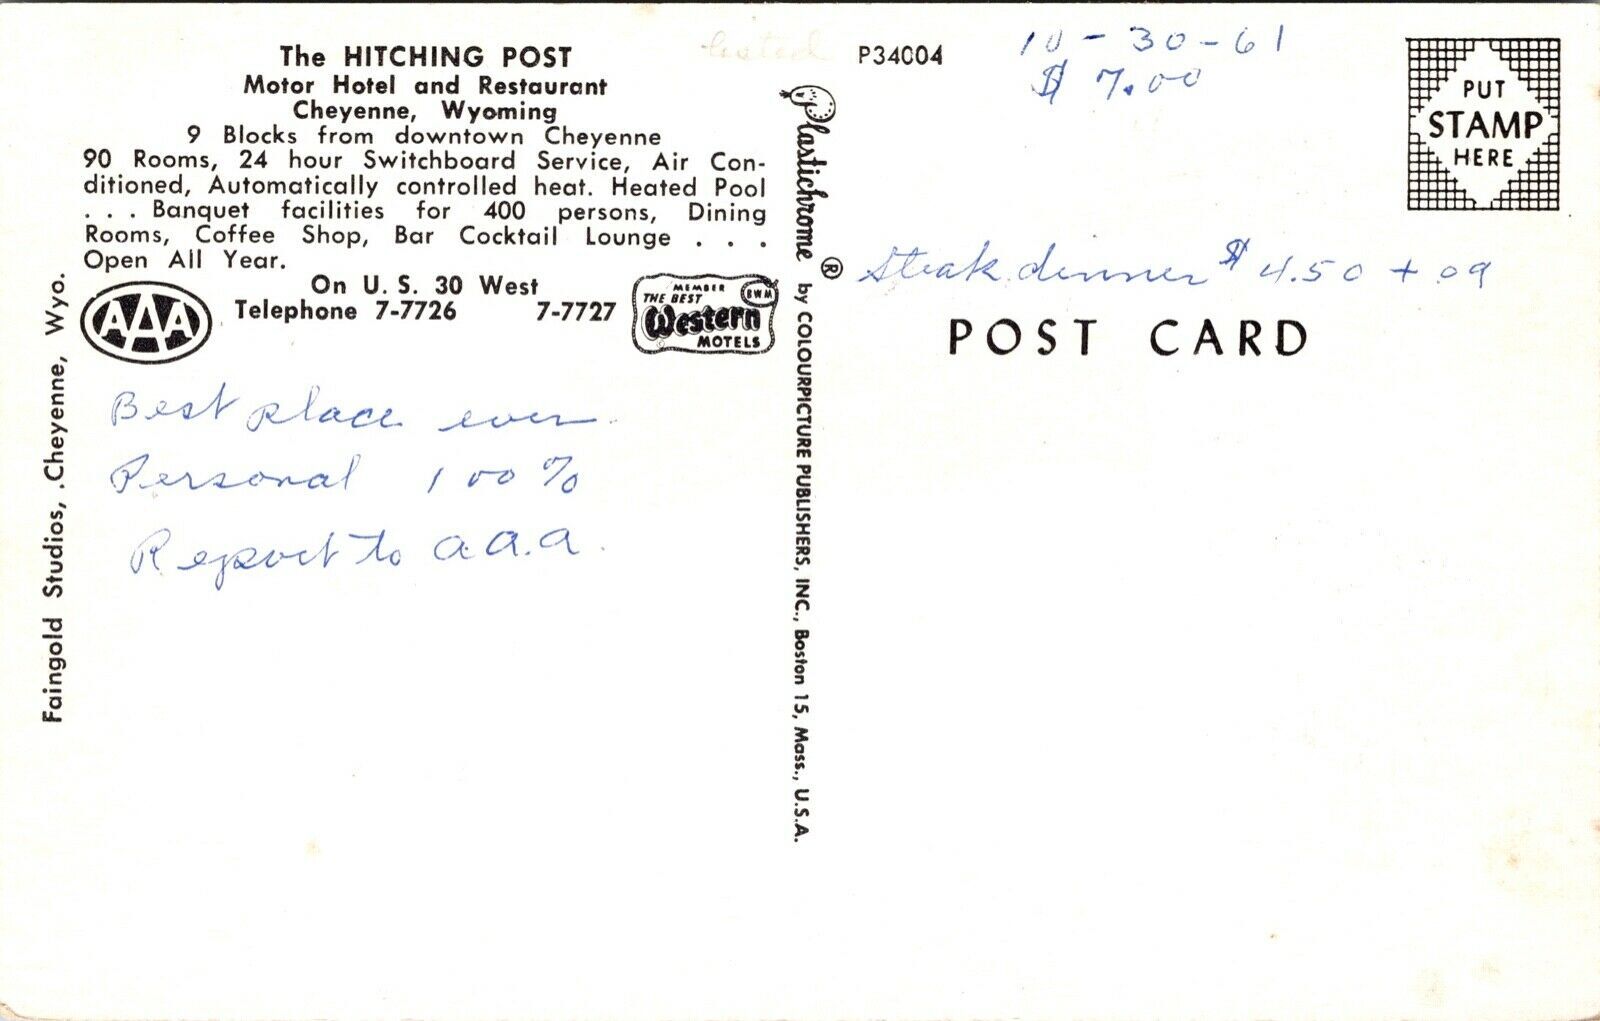 The HITCHING POST
Motor Hotel and Restaurant
Cheyenne, Wyoming
9 Blocks from downtown Cheyenne
90 Rooms, 24 hour Switchboard Service, Air Con-
ditioned, Automatically controlled heat. Heated Pool
. . . Banquet facilities for 400 persons, Dining
Rooms, Coffee Shop, Bar Cocktail Lounge . . .
Open All Year.
On U. S. 30 West
Telephone 7-7726 7-7727
AAA
MEMBER
THE BEST
BWM
Western
MOTELS
Best place ever
Personal 100%
Report to a.a.a.
Faingold Studios, Cheyenne, Wyo.
Plastichrome ® by COLOURPICTURE PUBLISHERS, INC., Boston 15, Mass., U.S.A.
P34004
10-30-61
$ 7.00
PUT
STAMP
HERE
Steak dinner $ 4.50 + .09
POST CARD